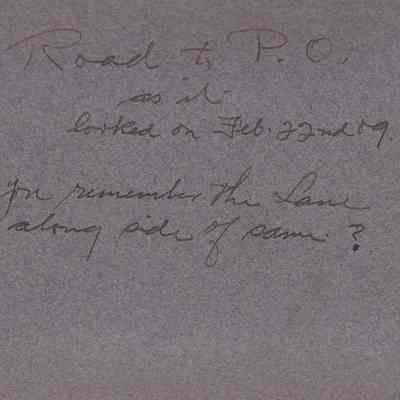 Road to P.O.
as it
looked on Feb. 22nd 09.
you remember the Lane
along side of same?